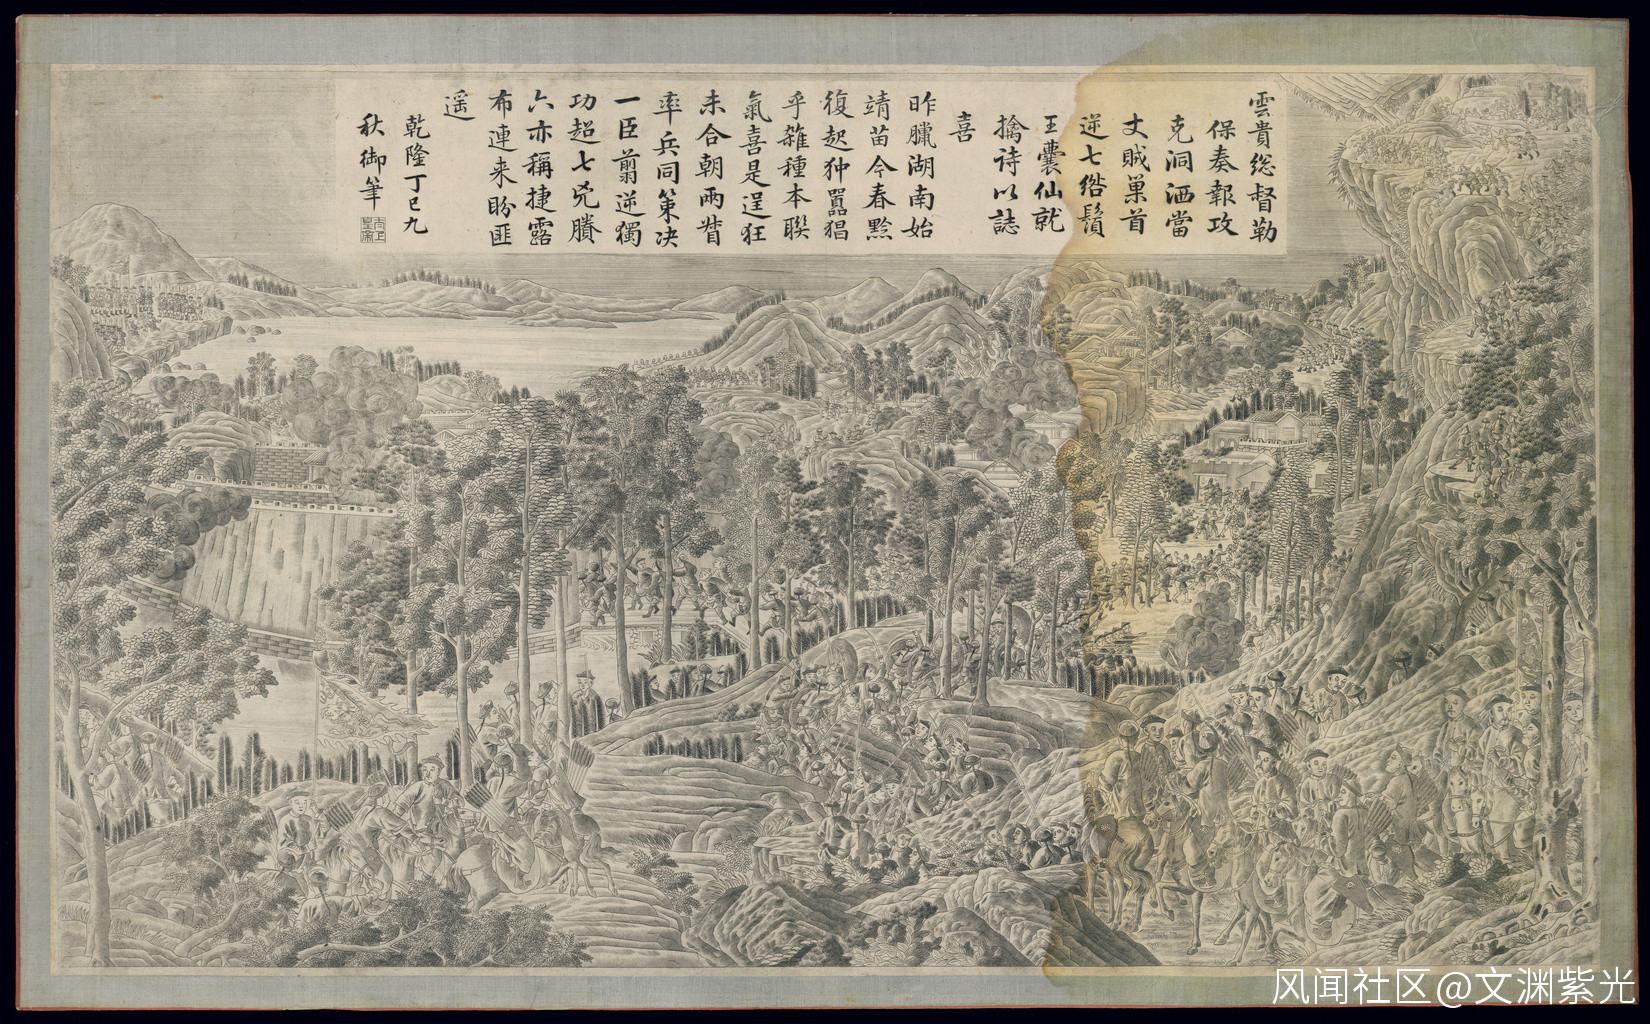 雲貴総督勒
保奏報攻
克洞洒當
丈賊巢首
逆七绺鬚
王囊仙就
擒詩以誌
喜
昨臘湖南始
靖苗今春黔
復起狆嚚猖
乎雜種本聯
氣喜是逞狂
未合朝兩畨
率兵同策决
一臣翦逆獨
功超七兇賸
六亦稱捷露
布連来盼匪
遥
乾隆丁巳九
秋御筆
太上
皇帝
风闻社区@文渊紫光